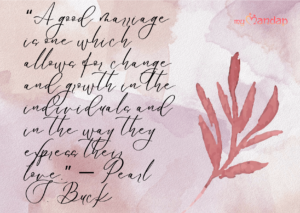 "A good marriage
is one which
allows for change
and growth in the
individuals and
in the way they
express their
love." — Pearl
S. Buck